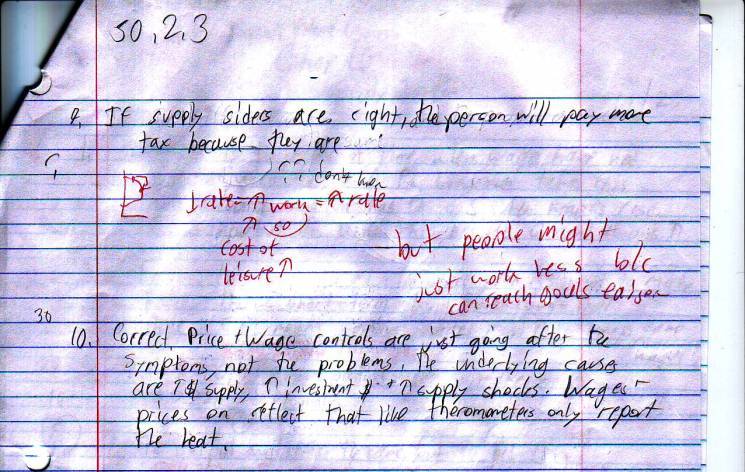 50, 2, 3
9. If supply siders are right, the person will pay more
tax because they are
?? don't know
↓rate = ↑ work = ↑ rate
↑ so
cost of
leisure ↑
but people might
just work less b/c
can reach goals easier
30
10. Correct. Price + Wage controls are just going after the
symptoms, not the problems. The underlying causes
are ↑$ supply, ↑ investment $ + ↑ supply shocks. Wages +
prices on reflect that like theromometers only report
the heat.